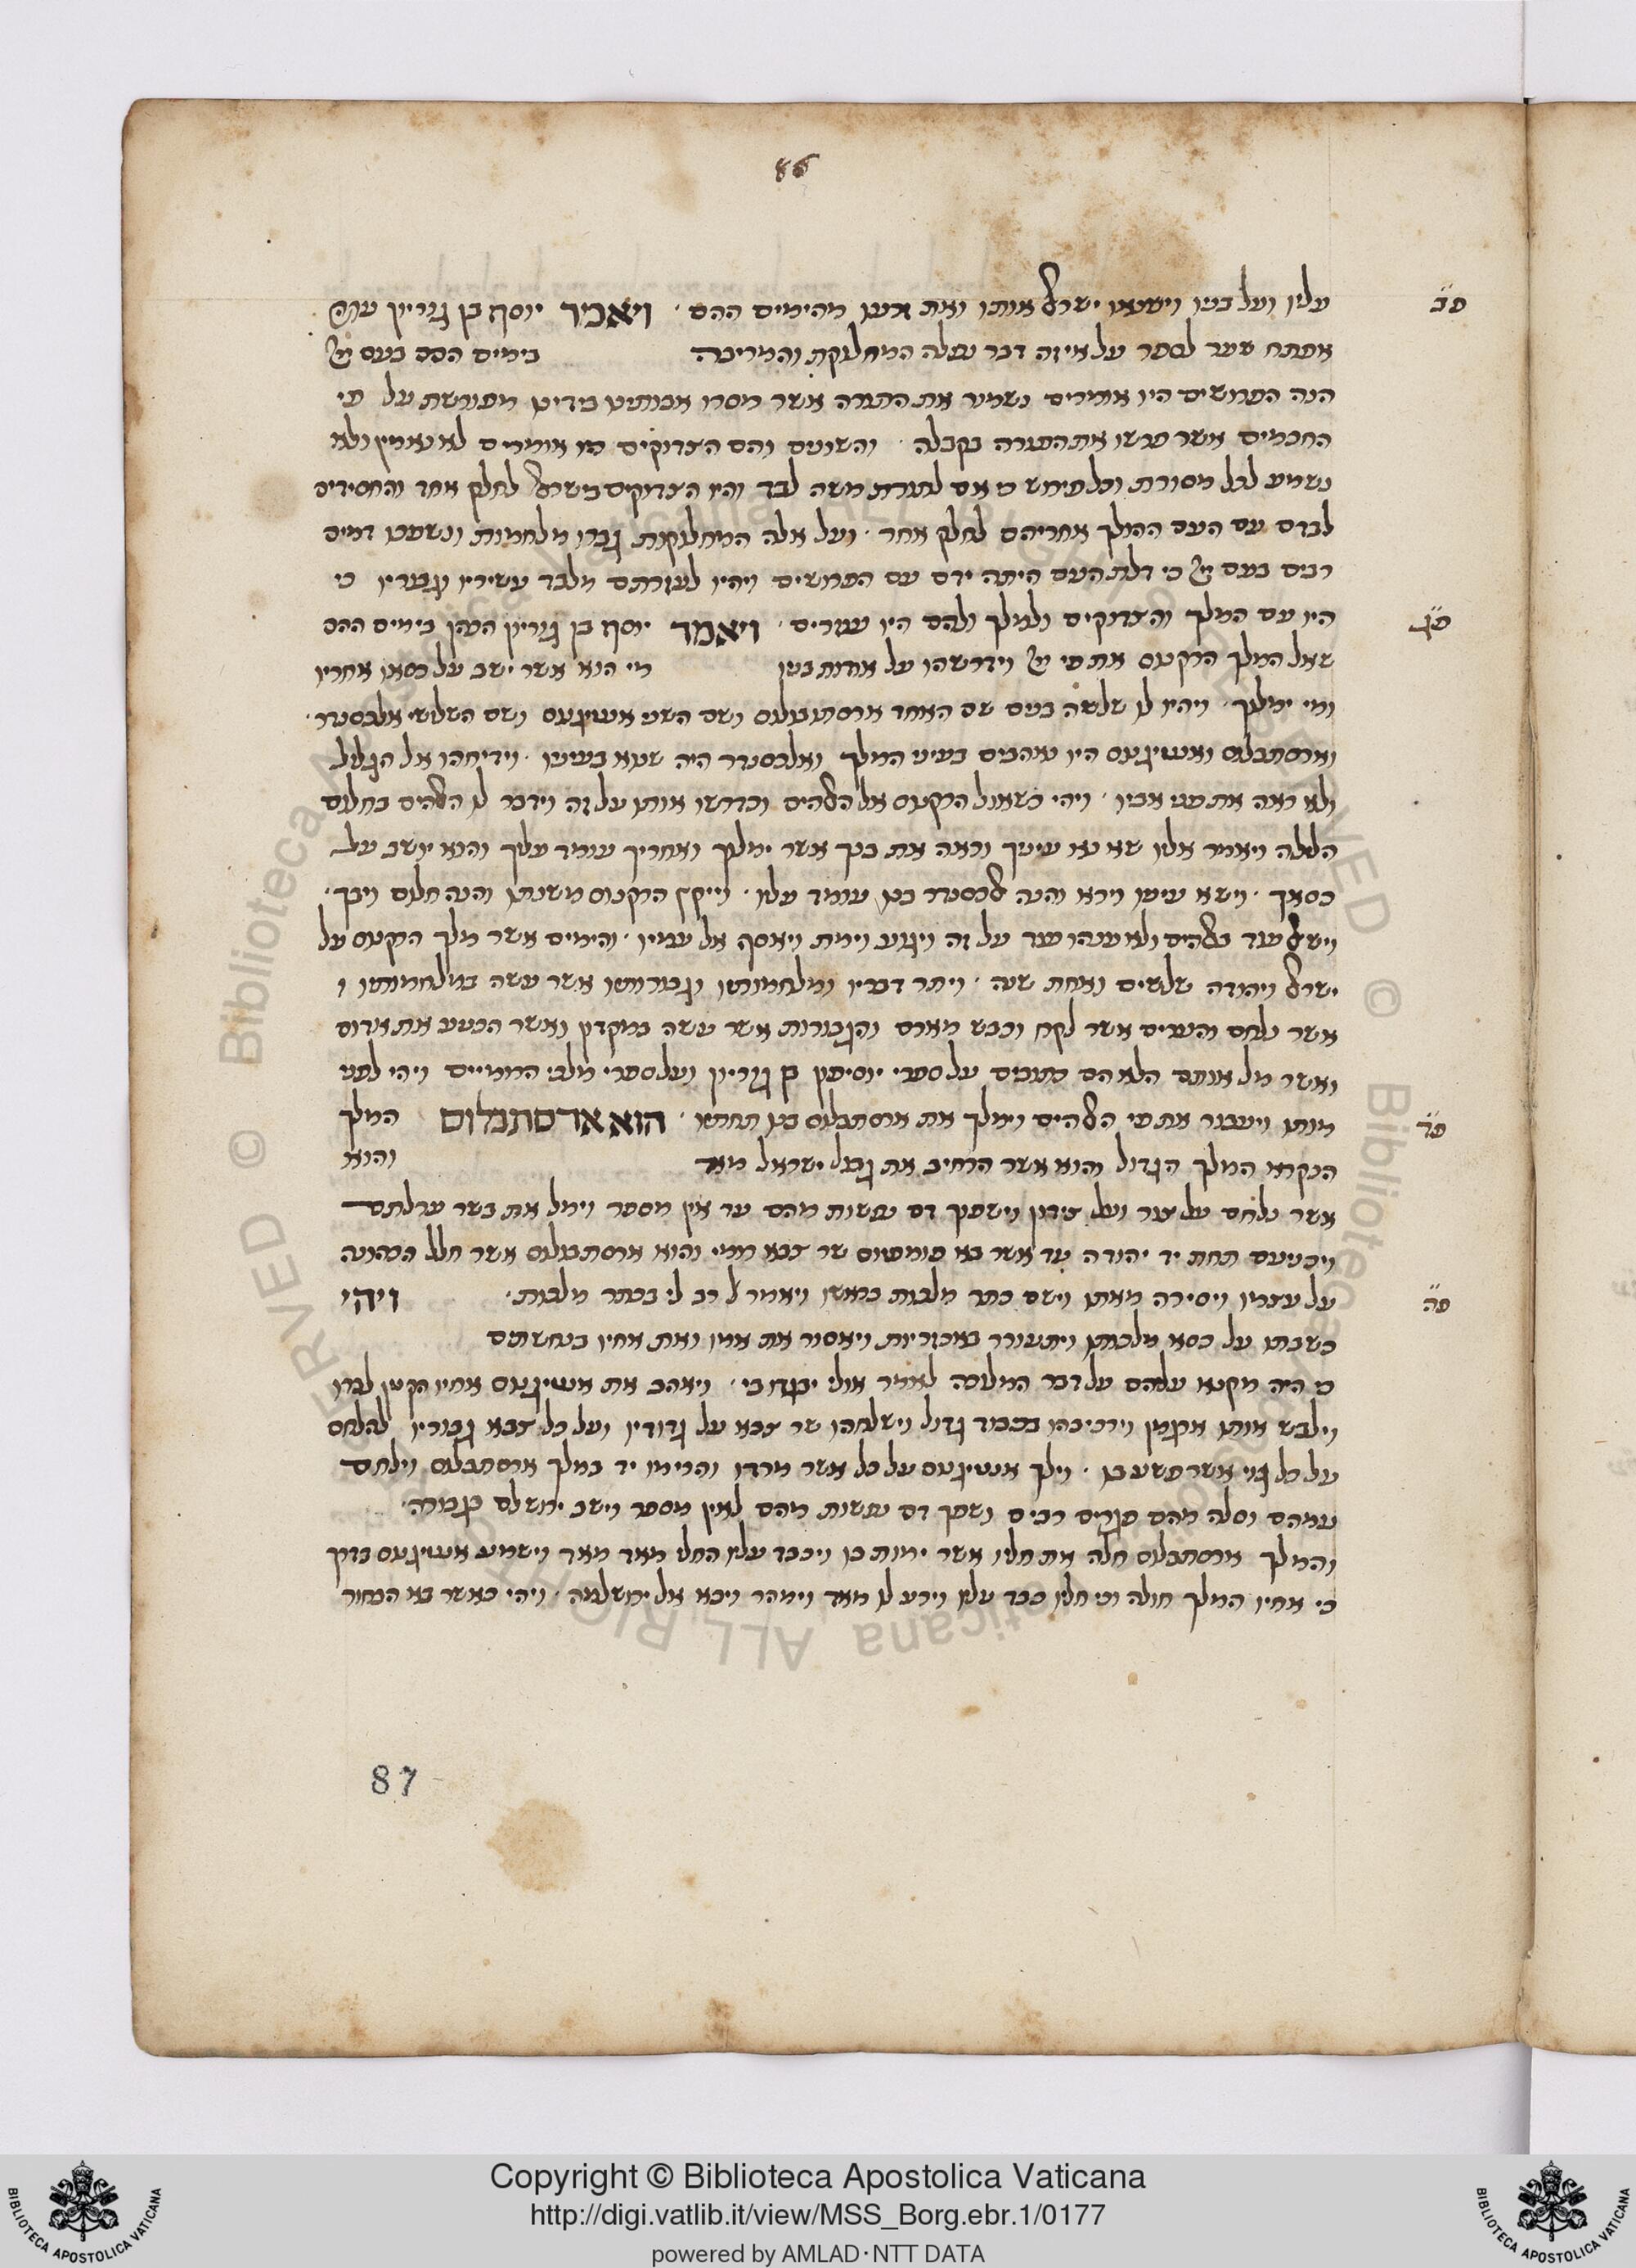 86
עליו ועל בניו וישנאו ישראל אותו ואת זרעו מהימים ההם · ויאמר יוסף בן גוריון עוד
פ״ב
אפתח שער לספר על איזה דבר עלה המחלוקת והמריבה בימים ההם בעם יי׳
הנה הפרושים היו אומרים נשמור את התורה אשר מסרו אבותינו בידינו מפורשת על פי
החכמים אשר פרשו את התורה בקבלה · והשונים והם הצדוקים היו אומרים לא נאמין ולא
נשמע לכל מסורת וכל פירוש כי אם לתורת משה לבד והיו הצדוקים בישראל לחלק אחד והחסידים
לבדם עם העם ההולך אחריהם לחלק אחד · ועל אלה המחלוקות גברו מלחמות ונשפכו דמים
רבים בעם יי׳ כי דלת העם היתה ידם עם הפרושים ויהיו לעזרתם מלבד עשיריו וגבוריו כי
היו עם המלך והצדוקים ולמלך ולהם היו עוזרים · ויאמר יוסף בן גוריון הכהן בימים ההם
פ״ג
שאל המלך הרקנוס את פי יי׳ וידרשהו על אודות בניו מי הוא אשר ישב על כסאו אחריו
ומי ימלוך · ויהיו לו שלשה בנים שם האחד ארסתובלוס ושם השני אנטיגנוס ושם השלישי אלכסנדר ·
וארסתבלוס ואנטיגנוס היו אהובים בעיני המלך ואלכסנדר היה שנוא בעיניו · וידיחהו אל הגליל
ולא ראה את פני אביו · ויהי כשאול הרקנוס אל האלהים וכדרשו אותו על זה וידבר לו האלהים בחלום
הלילה ויאמר אליו שא נא עיניך וראה את בנך אשר ימלוך ואחריך עומד עליך והוא יושב על
כסאך · וישא עיניו וירא והנה אלכסנדר בנו עומד עליו · וייקץ הרקנוס משנתו והנה חלום ויבך ·
וישאל עוד באלהים ולא ענהו עוד על זה ויגוע וימת ויאסף אל עמיו · והימים אשר מלך הרקנוס על
ישראל ויהודה שלשים ואחת שנה · ויתר דבריו ומלחמותיו וגבורותיו אשר עשה במלחמותיו ו
אשר נלחם והערים אשר לקח וכבש מארם והגבורות אשר עשה במקדון ואשר הכניע את אדום
ואשר מל אותם הלא הם כתובים על ספרי יוסיפון בן גוריון ועל ספרי מלכי הרומיים ויהי לפני
מותו ויעבור את פי האלהים וימלך את ארסתבלוס בנו תחתיו · הוא ארסתבלוס המלך
פ״ד
הנקרא המלך הגדול והוא אשר הרחיב את גבול ישראל מאד והוא
אשר נלחם על צור ועל צידון וישפוך דם עשות מהם עד אין מספר וימל את בשר ערלתם
ויכניעם תחת יד יהודה עד אשר בא פומפיוס שר צבא רומי והוא ארסתבולוס אשר חלל הכהונה
על עצמו ויסירה מאתו וישם כתר מלכות בראשו ויאמר ל רב לי בכתר מלכות · ויהי
פ״ה
כשבתו על כסא מלכותו ויתעורר באכזריות ויאסור את אמו ואת אחיו בנחשתים
כי היה מקנא עליהם על דבר המלוכה לאמר אולי יבגדו בי · ויאהב את אנטיגנוס אחיו הקטן לבדו
וילבש אותו ארגמן וירכיבהו בכבוד גדול וישלחהו שר צבא על גדודיו ועל כל צבא גבוריו להלחם
על כל גוי אשר פשע בו · וילך אנטיגנוס על כל אשר מרדו והרימו יד במלך ארסתבלוס וילחם
עמהם וסלה מהם פגרים רבים ושפך דם עשות מהם לאין מספר וישב ירושלם בגבורה ·
והמלך ארסתבלוס חלה את חליו אשר ימות בו ויכבד עליו החלי מאד מאד וישמע אנטיגנוס בדרך
כי אחיו המלך חולה וכי חליו כבד עליו וירע לו מאד וימהר ויבא אל ירושלמה · ויהי כאשר בא הבחור
87
Copyright © Biblioteca Apostolica Vaticana
http://digi.vatlib.it/view/MSS_Borg.ebr.1/0177
powered by AMLAD·NTT DATA
BIBLIOTECA APOSTOLICA VATICANA
BIBLIOTECA APOSTOLICA VATICANA